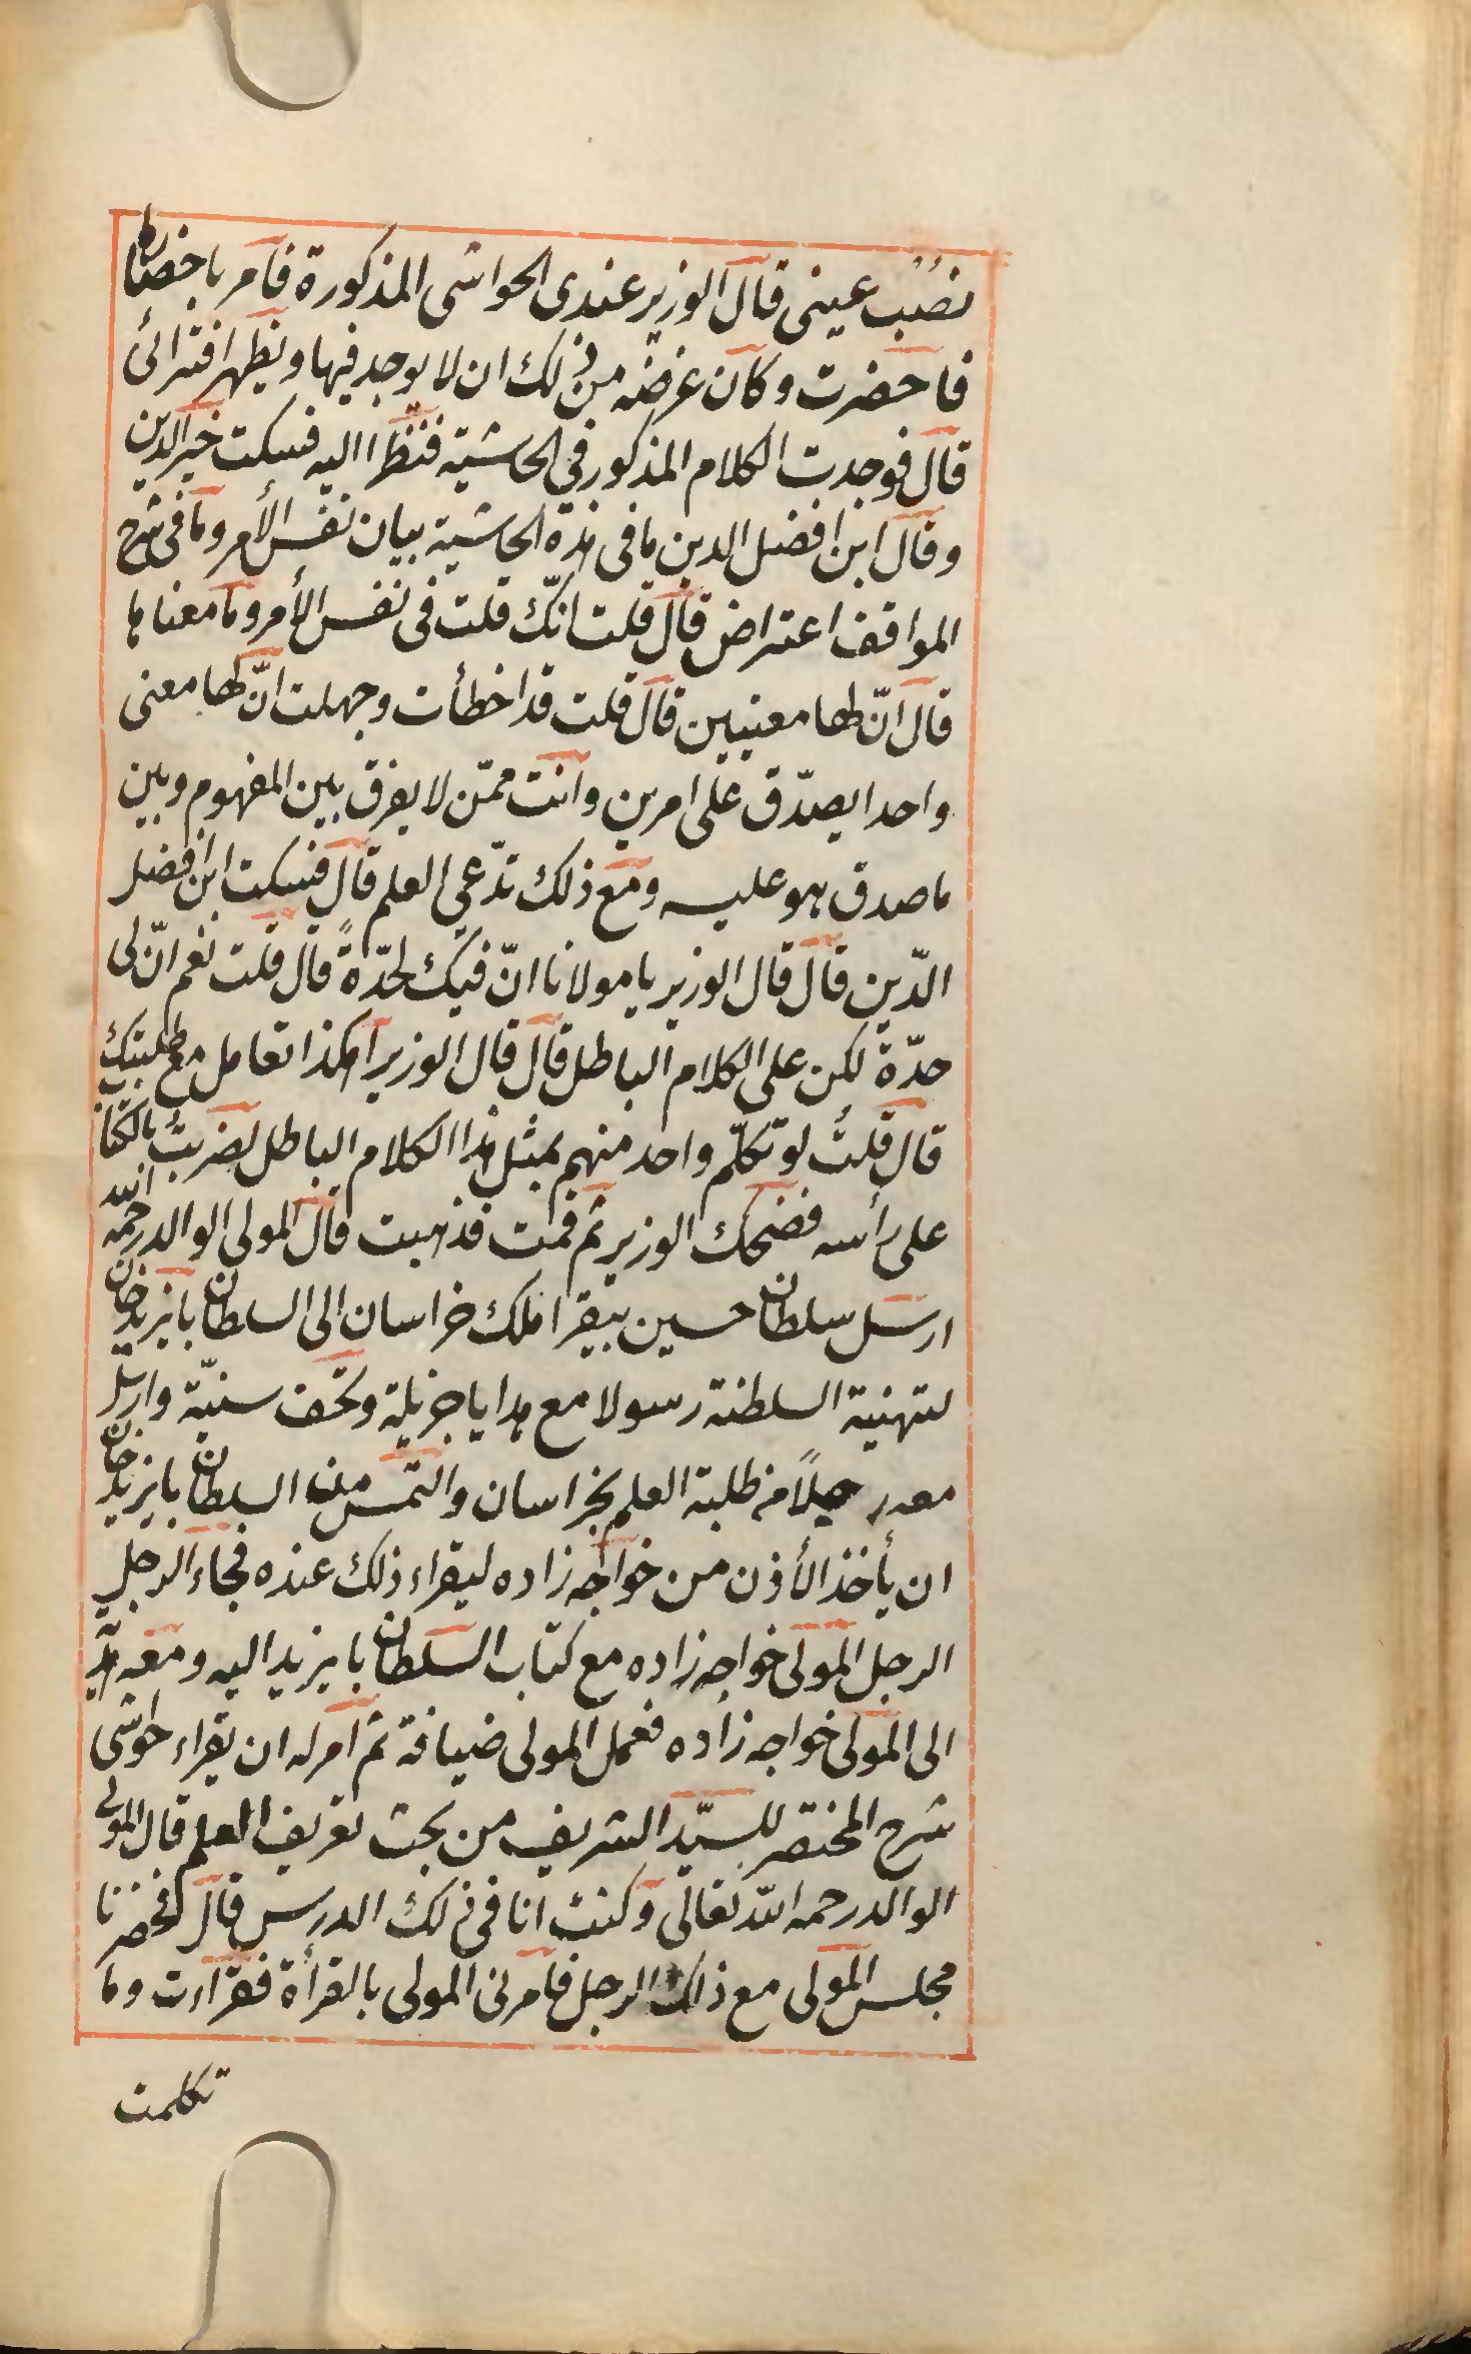 نصب عينى قال الوزير عندى الحواشى المذكورة فامر باحضارها
فاحضرت وكان غرضه من ذلك ان لا يوجد فيها ويظهر افترائى
قال فوجدت الكلام المذكور فى الحاشية فنظرا اليه فسكت خير الدين
وقال ابن افضل الدين ما فى هذه الحاشية بيان نفس الأمر وما فى شرح
المواقف اعتراض قال قلت انّك قلت فى نفس الأمر وما معناها
قال انّ لها معنيين قال قلت قد اخطأت وجهلت انّ لها معنى
واحدا يصدّق على امرين وانت ممّن لا يفرق بين المفهوم وبين
ما صدق هو عليه ومع ذلك تدّعى العلم قال فسكت ابن افضل
الدّين قال قال الوزير يا مولانا انّ فيك لحدّةً قال قلت نعم انّ لى
حدّة لكن على الكلام الباطل قال قال الوزير اهكذا تعامل مع طلبتك
قال قلتُ لو تكلّم واحد منهم بمثل هذا الكلام الباطل لضربتُ بالكتاب
على رأسه فضحك الوزير ثم قمت فذهبت قال المولى الوالد رحمه الله
ارسل سلطان حسين بيقرا ملك خراسان الى السلطان بايزيد خان
لتهنية السلطنة رسولا مع هدايا جزيلة وتحف سنيّة وارسل
معه رجلاً من طلبة العلم بخراسان والتمس من السلطان بايزيد خان
ان يأخذ الأذن من خواجه زاده ليقراء ذلك عنده فجاء الرجل
الرجل المولى خواجه زاده مع كتاب السلطان بايزيد اليه ومعه هدية
الى المولى خواجه زاده فعمل المولى ضيافة ثم امر له ان يقراء حواشى
شرح المختصر للسيّد الشريف من بحث تعريف العلم قال المولى
الوالد رحمه الله تعالى وكنت انا فى ذلك الدرس قال فحضرنا
مجلس المولى مع ذلك الرجل فامرنى المولى بالقرأة فقراءت وما
تكلمت